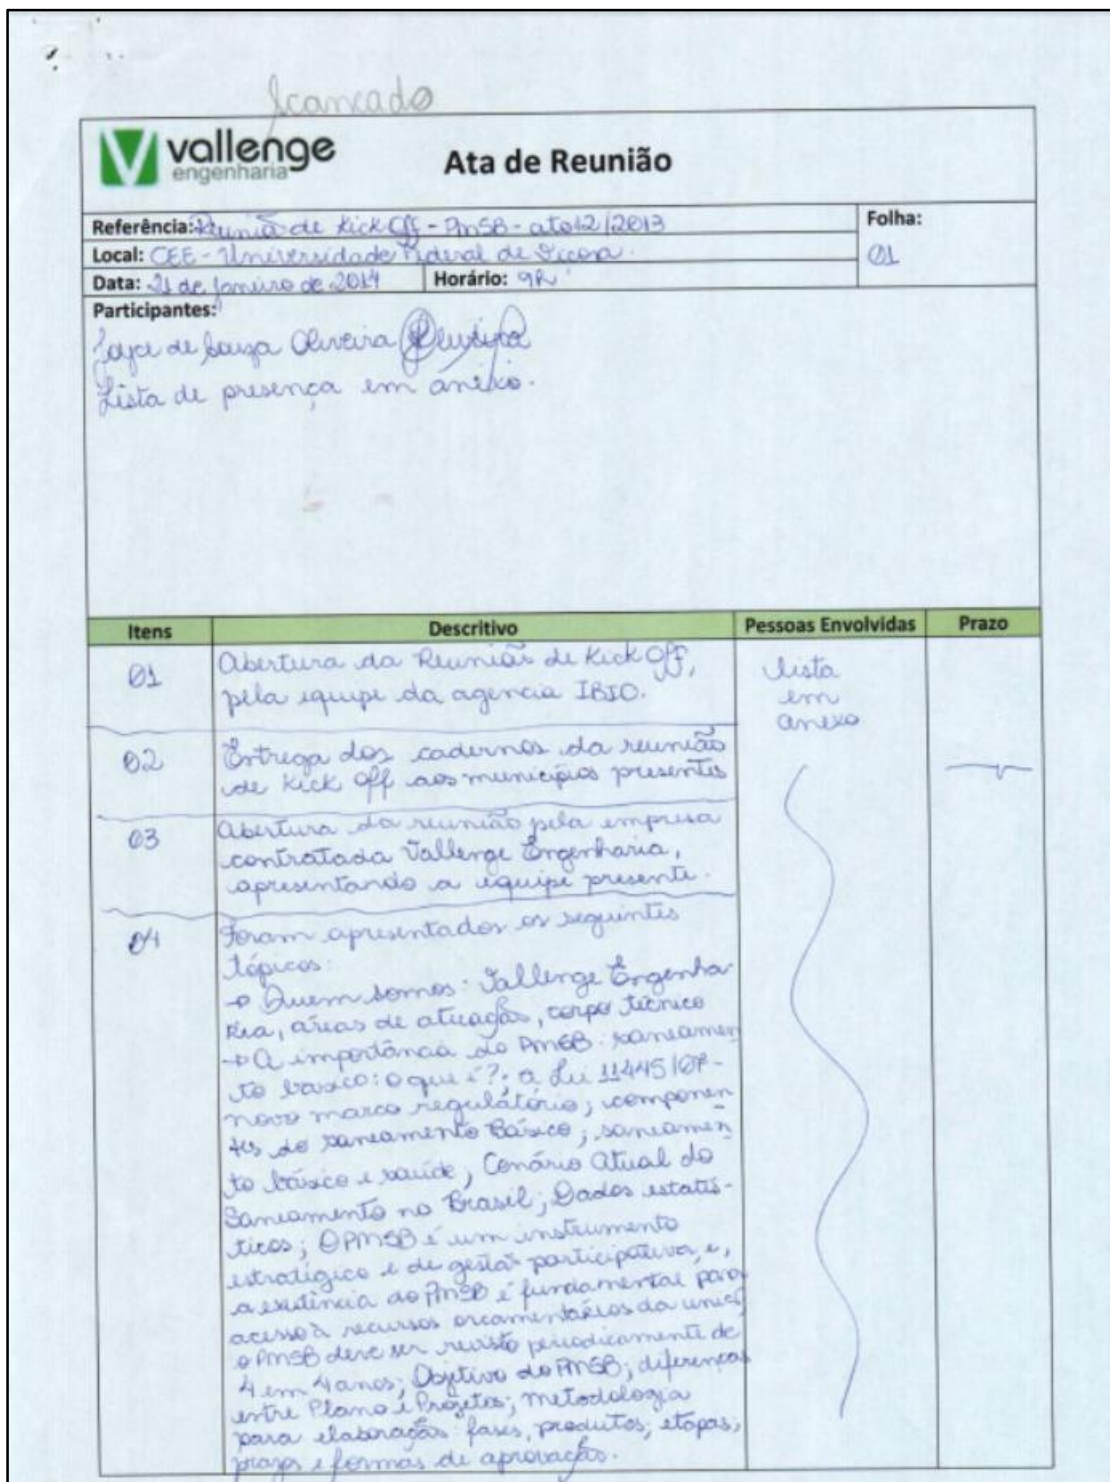 Scaneado
vallenge
engenharia
Ata de Reunião
Referência: Reunião de Kick Off - PMSB - ato 12/2013
Folha:
01
Local: CEE - Universidade Federal de Viçosa.
Data: 21 de Janeiro de 2014 Horário: 9h
Participantes:
Joyce de Souza Oliveira
Lista de presença em anexo.
Itens Descritivo Pessoas Envolvidas Prazo
01
Abertura da Reunião de Kick Off,
pela equipe da agencia IBIO.
lista
em
anexo
02
Entrega dos cadernos da reunião
de Kick Off aos municípios presentes
03
Abertura da reunião pela empresa
contratada Vallenge Engenharia,
apresentando a equipe presente.
04
Foram apresentados os seguintes
tópicos:
→ Quem somos: Vallenge Engenha-
ria, áreas de atuação, corpo técnico
→ A importância do PMSB: saneamen
to básico: o que é?; a Lei 11445/07-
novo marco regulatório; componen
tes do saneamento Básico; saneamen
to básico e saúde; Cenário Atual do
Saneamento no Brasil; Dados estatís-
ticos; O PMSB é um instrumento
estratégico e de gestão participativa, e,
a existência do PMSB é fundamental para
acesso à recursos orcamentários da união;
o PMSB deve ser revisto periodicamente de
4 em 4 anos; Objetivo do PMSB; diferenças
entre Plano e Projetos; metodologia
para elaboração: fases, produtos, etapas,
prazos e formas de aprovação.